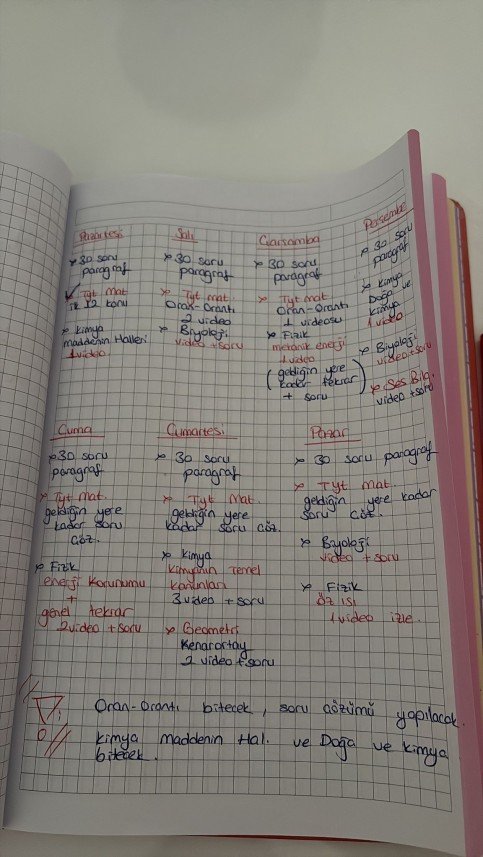 Pazartesi
* 30 soru
paragraf
Tyt Mat
ilk 12 konu
* Kimya
maddenin Halleri
1 video
Salı
* 30 soru
paragraf
* Tyt mat.
Oran-Orantı
2 video
* Biyoloji
video + soru
Çarşamba
* 30 soru
paragraf
* Tyt mat
Oran-Orantı
1 videosu
* Fizik
mekanik enerji
1 video
( geldiğin yere
kadar tekrar )
+ soru
Perşembe
* 30 soru
paragraf
* Kimya
Doğa ve
kimya
1 video
* Biyoloji
video + soru
* Ses Bilg.
video + soru
Cuma
* 30 soru
paragraf
* Tyt mat.
geldiğin yere
kadar soru
çöz.
* Fizik
enerji korunumu
+
genel tekrar
2 video + soru
Cumartesi
* 30 soru
paragraf
* Tyt Mat.
geldiğin yere
kadar soru çöz.
* Kimya
Kimyanın Temel
kanunları
3 video + soru
* Geometri
Kenarortay
2 video + soru
Pazar
* 30 soru paragraf
* TYT mat.
geldiğin yere kadar
soru çöz.
* Biyoloji
video + soru
* Fizik
öz ısı
1 video izle.
Oran-Orantı bitecek, soru çözümü yapılacak.
Kimya maddenin Hal. ve Doğa ve kimya
bitecek.